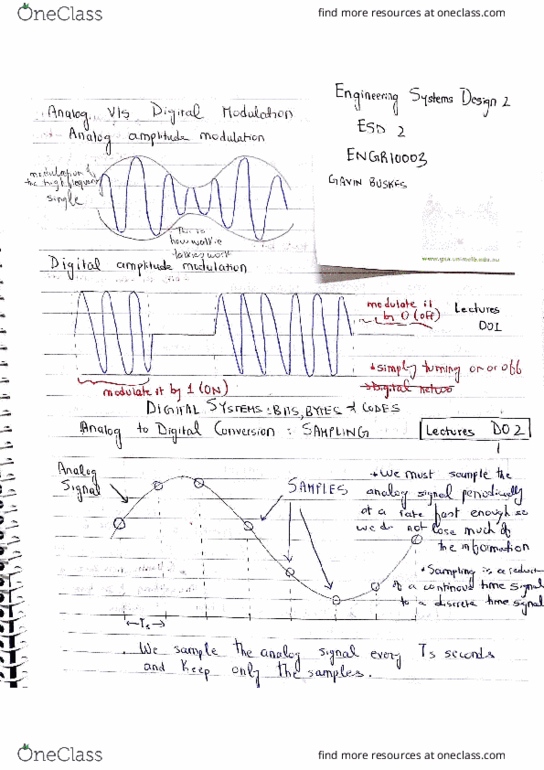 OneClass
find more resources at oneclass.com
Engineering Systems Design 2
ESD 2
ENGR10003
GAVIN BUSKES
Analog V/S Digital Modulation
Analog amplitude modulation
modulation of
the high frequency
single
This is
how walkie
talkies work
Digital amplitude modulation
modulate it
by 0 (off)
Lectures
D01
simply turning on or off
Digital netwo
modulate it by 1 (ON)
DIGITAL SYSTEMS: BITS, BYTES & CODES
Analog to Digital Conversion: SAMPLING
Lectures D02
Analog
Signal
SAMPLES
We must sample the
analog signal periodically
at a rate fast enough so
we do not lose much of
the information
Sampling is a reduct
of a continous time signal
to a discrete time signal
Ts
We sample the analog signal every Ts seconds
and keep only the samples.
OneClass
find more resources at oneclass.com